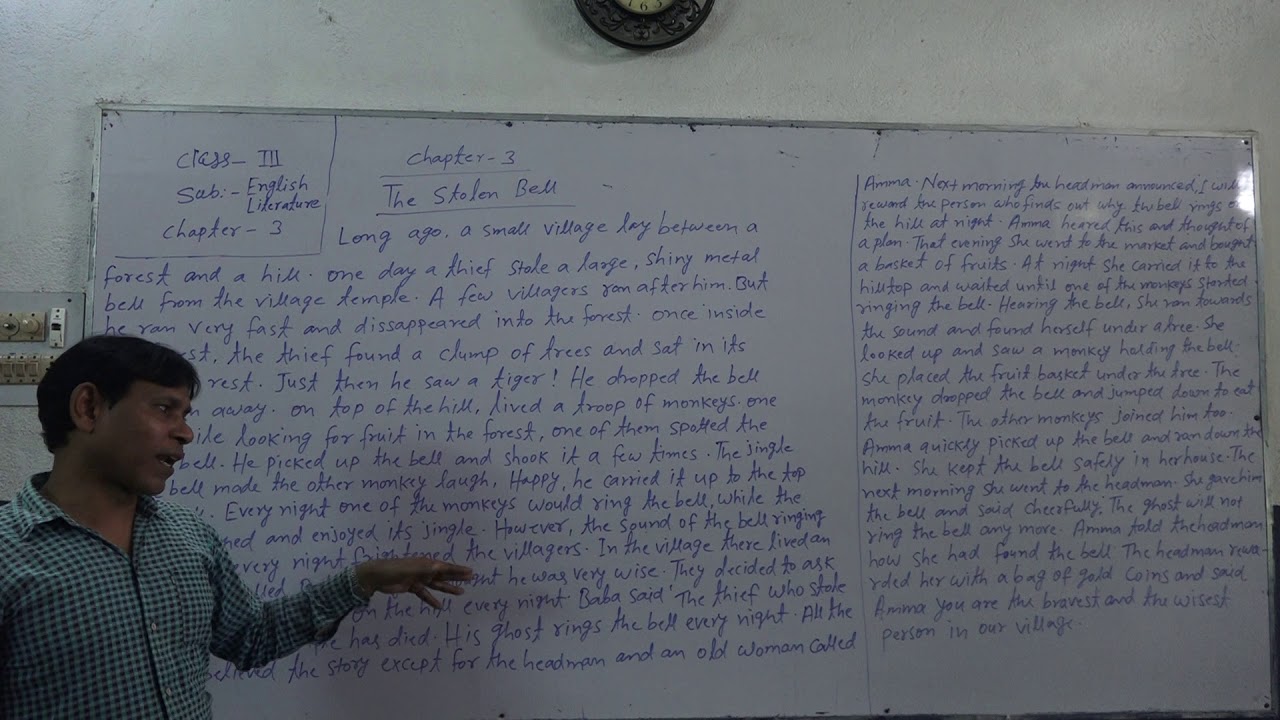 Class- III
Sub:- English
Literature
Chapter - 3
Chapter - 3
The Stolen Bell
Long ago. a small village lay between a
forest and a hill. one day a thief stole a large, shiny metal
bell from the village temple. A few villagers ran after him. But
he ran very fast and dissappeared into the forest. once inside
the thief found a clump of trees and sat in its
rest. Just then he saw a tiger! He dropped the bell
away. on top of the hill, lived a troop of monkeys. one
looking for fruit in the forest, one of them spotted the
bell. He picked up the bell and shook it a few times. The jingle
bell made the other monkey laugh, Happy, he carried it up to the top
Every night one of the monkeys would ring the bell, while the
and enjoyed its jingle. However, the sound of the bell ringing
every night frightened the villagers. In the village there lived an
he was very wise. They decided to ask
on the hill every night Baba said 'The thief who stole
has died. His ghost rings the bell every night. All the
believed the story except for the headman and an old woman called
Amma. Next morning the headman announced, I will
reward the person who finds out why the bell rings
the hill at night. Amma heared this and thought of
a plan. That evening She went to the market and bought
a basket of fruits. At night She carried it to the
hilltop and waited until one of the monkeys started
ringing the bell. Hearing the bell, She ran towards
the sound and found herself under a tree. She
looked up and saw a monkey holding the bell.
She placed the fruit basket under the tree. The
monkey dropped the bell and jumped down to eat
the fruit. The other monkeys joined him too.
Amma quickly picked up the bell and ran down the
hill. She kept the bell safely in her house. The
next morning She went to the headman. She gave him
the bell and said cheerfully, The ghost will not
ring the bell any more. Amma told the headman
how She had found the bell The headman rewa-
rded her with a bag of gold coins and said
Amma you are the bravest and the wisest
person in our village.